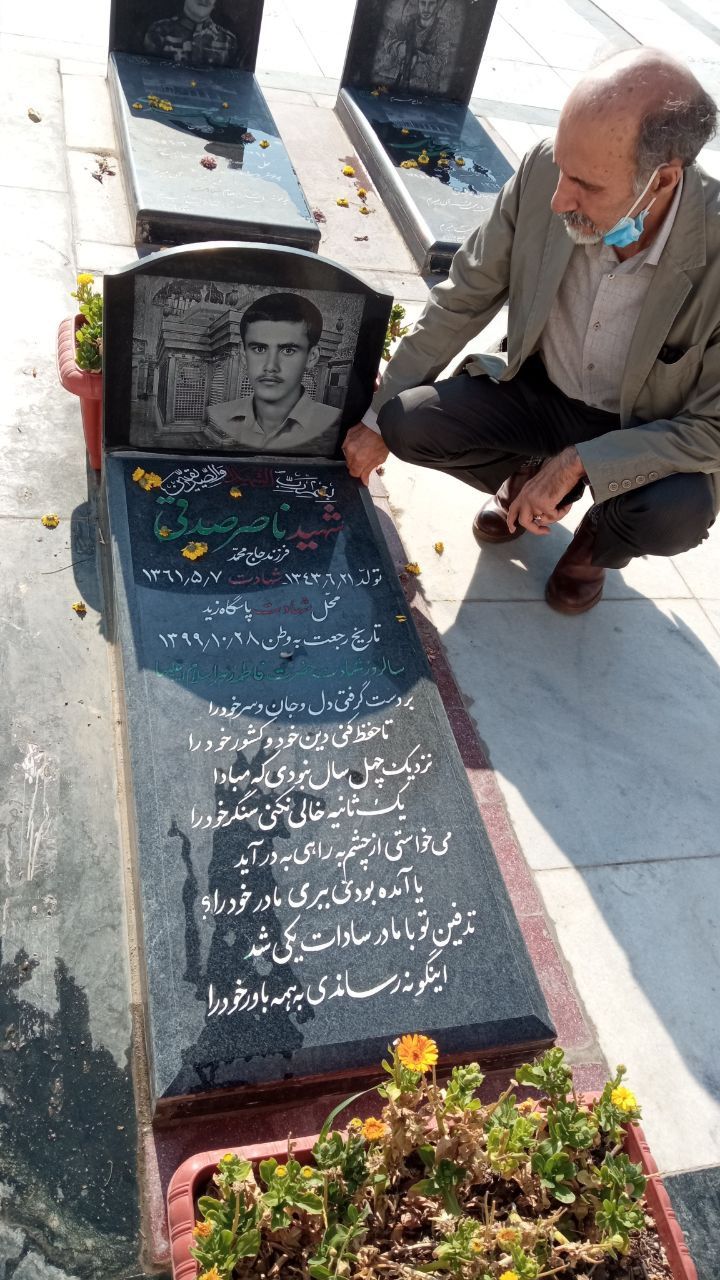 شهید ناصر صدقی
فرزند حاج محمّد
تولّد ۱۳۴۳,۶,۲۱ شهادت ۱۳۶۱,۵,۷
محلّ شهادت پاسگاه زید
تاریخ رجعت به وطن ۱۳۹۹,۱۰,۲۸
سالروز شهادت حضرت فاطمه زهرا سلام الله علیها
بر دست گرفتی دل و جان و سر خود را
تا حفظ کنی دین خود و کشور خود را
نزدیک چهل سال نبودی که مبادا
یک ثانیه خالی نکنی سنگر خود را
می‌خواستی از چشم به راهی به در آید
یا آمده بودی ببری مادر خود را؟
تدفین تو با مادر سادات یکی شد
اینگونه رساندی به همه باور خود را